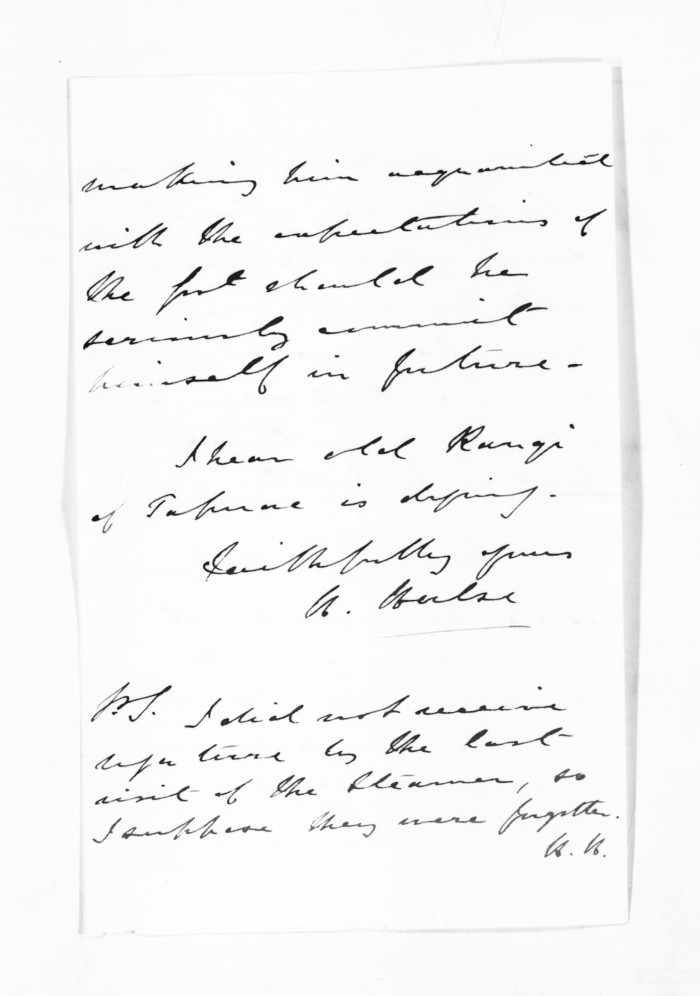 making him acquainted
with the expectations of
the fort should he
seriously commit
himself in future -
I hear old Rangi
of is dying.
Faithfully yours
H. Halse
P.S. I did not receive
by the last
visit of the Steamer, so
I suppose they were forgotten.
H. H.